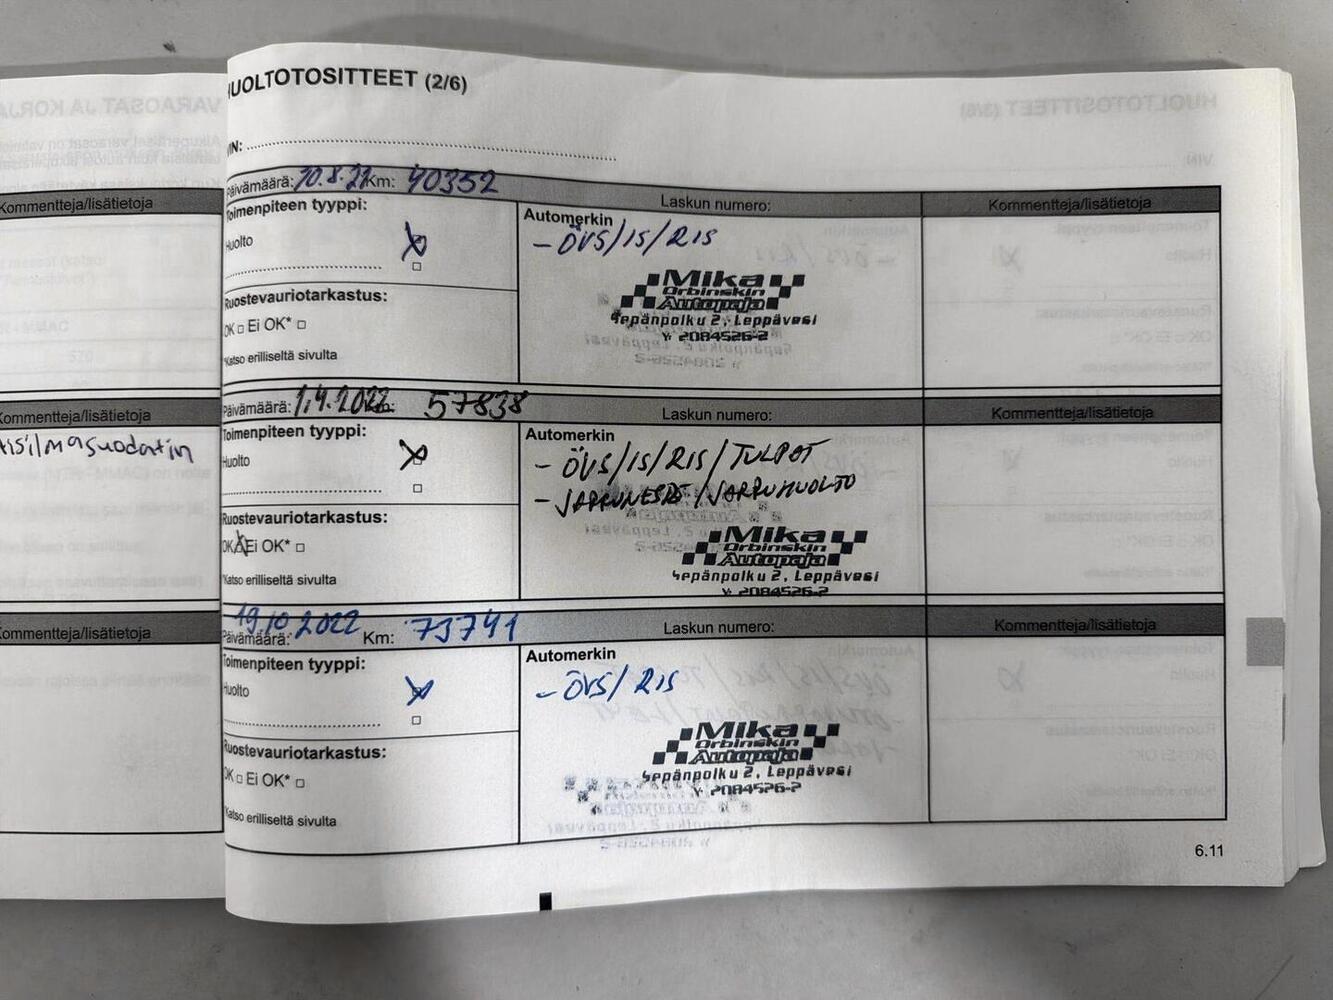 HUOLTOTOSITTEET (2/6)
VIN:
Päivämäärä: Km: 40352
Laskun numero:
Kommentteja/lisätietoja
Toimenpiteen tyyppi:
Huolto
Automerkin
- ÖVS/IS/RIS
Mika
Orbinskin
Autopaja
Sepänpolku 2, Leppävesi
Y: 2084526-2
Ruostevauriotarkastus:
OK Ei OK*
*Katso erilliseltä sivulta
Kommentteja/lisätietoja
Päivämäärä: 1.4.2022 57838
Laskun numero:
Kommentteja/lisätietoja
Toimenpiteen tyyppi:
Huolto
Automerkin
- ÖVS/IS/RIS/TULPOT
- JARRUNESTE/JARRUHUOLTO
Mika
Orbinskin
Autopaja
Sepänpolku 2, Leppävesi
Y: 2084526-2
Ruostevauriotarkastus:
OK Ei OK*
*Katso erilliseltä sivulta
Kommentteja/lisätietoja
19.10.2022
Päivämäärä: Km: 73741
Laskun numero:
Kommentteja/lisätietoja
Toimenpiteen tyyppi:
Huolto
Automerkin
- ÖVS/RIS
Mika
Orbinskin
Autopaja
Sepänpolku 2, Leppävesi
Y: 2084526-2
Ruostevauriotarkastus:
OK Ei OK*
*Katso erilliseltä sivulta
Kommentteja/lisätietoja
6.11